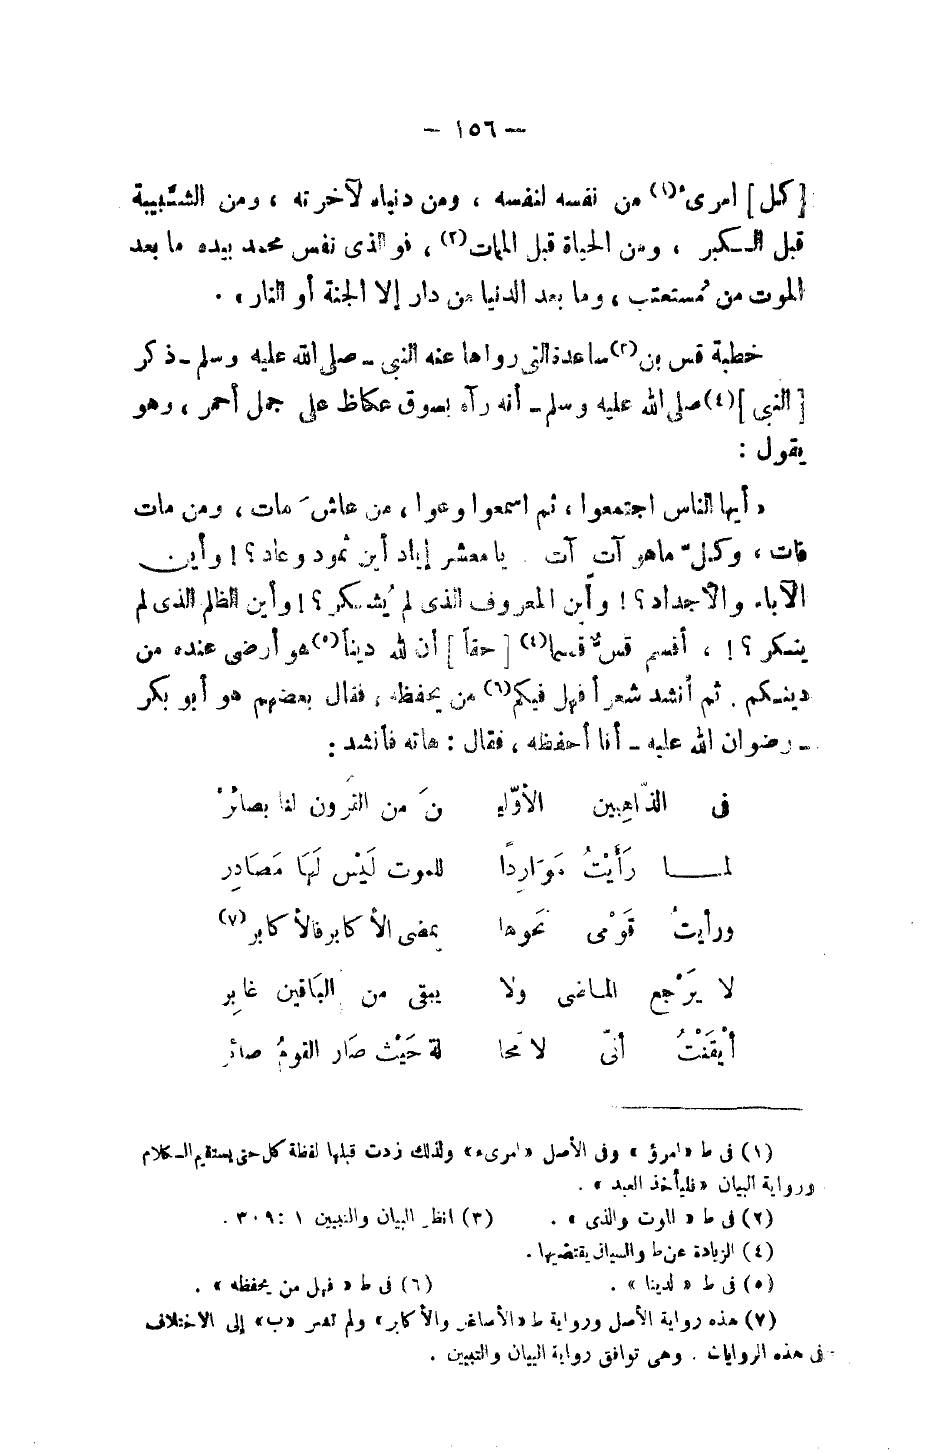 — ١٥٦ —
[كل] امرىء(١) من نفسه لنفسه ، ومن دنياه لآخرته ، ومن الشَّبيبة
قبل الكبر ، ومن الحياة قبل الممات(٢) ، فو الذى نفس محمد بيده ما بعد
الموت من مُستعتب ، وما بعد الدنيا من دار إلا الجنة أو النار » .
خطبة قس بن(٣) ساعدة التى رواها عنه النبى ـ صلى الله عليه وسلم ـ ذكر
[ النبى ](٤) صلى الله عليه وسلم ـ أنه رآه بسوق عكاظ على جمل أحمر ، وهو
يقول :
« أيها الناس اجتمعوا ، ثم اسمعوا وعوا ، من عاشَ مات ، ومن مات
فات ، وكلّ ماهو آت آت . يا معشر إياد أين ثمود وعاد ؟ ! وأين
الآباء والأجداد ؟ ! وأين المعروف الذى لم يُشكر ؟ ! وأين الظلم الذى لم
ينكر ؟ ! ، أقسم قسٌ قسما(٤) [ حقاً ] أن لله ديناً(٥) هو أرضى عنده من
دينكم . ثم أنشد شعراً فهل فيكم(٦) من يحفظه ، فقال بعضهم هو أبو بكر
ـ رضوان الله عليه ـ أنا أحفظه ، فقال : هاته فأنشد :
فى الذّاهِبين الأوّلِيـ نَ من القُرون لنا بصائرْ
لمـــا رَأَيْتُ مَوَارِداً للموت لَيْس لَها مَصَادِر
ورأيتُ قَوْمى نَحوها يمضى الأكابر فالأكابر(٧)
لا يَرْجع الماضى ولا يبقى من البَاقين غابِر
أيْقَنْتُ أنىّ لا محا لة حَيْث صَار القومُ صائر
(١) فى ط « امرؤ » وفى الأصل « امرىء » ولذلك زدت قبلها لفظة كل حتى يستقيم الكلام
ورواية البيان « فليأخذ العبد » .
(٢) فى ط « الموت والذى » . (٣) انظر البيان والتبيين ١ : ٣٠٩ .
(٤) الزيادة عن ط والسياق يقتضيها .
(٥) فى ط « لدينا » . (٦) فى ط « فهل من يحفظه » .
(٧) هذه رواية الأصل ورواية ط « الأصاغر والأكابر » ولم تشر « ب » إلى الاختلاف
فى هذه الروايات . وهى توافق رواية البيان والتبيين .